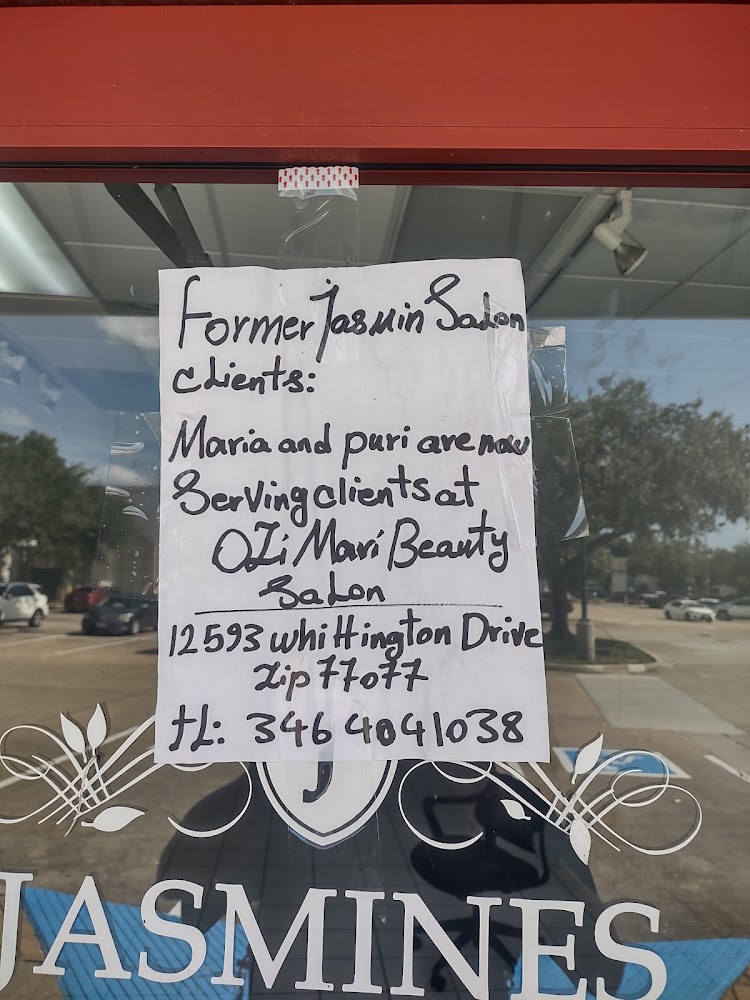 Former Jasmin Salon
Clients:
Maria and puri are now
Serving clients at
OZi Mari Beauty
Salon
12593 whittington Drive
Zip 77077
tL: 346 4041038
J
JASMINES